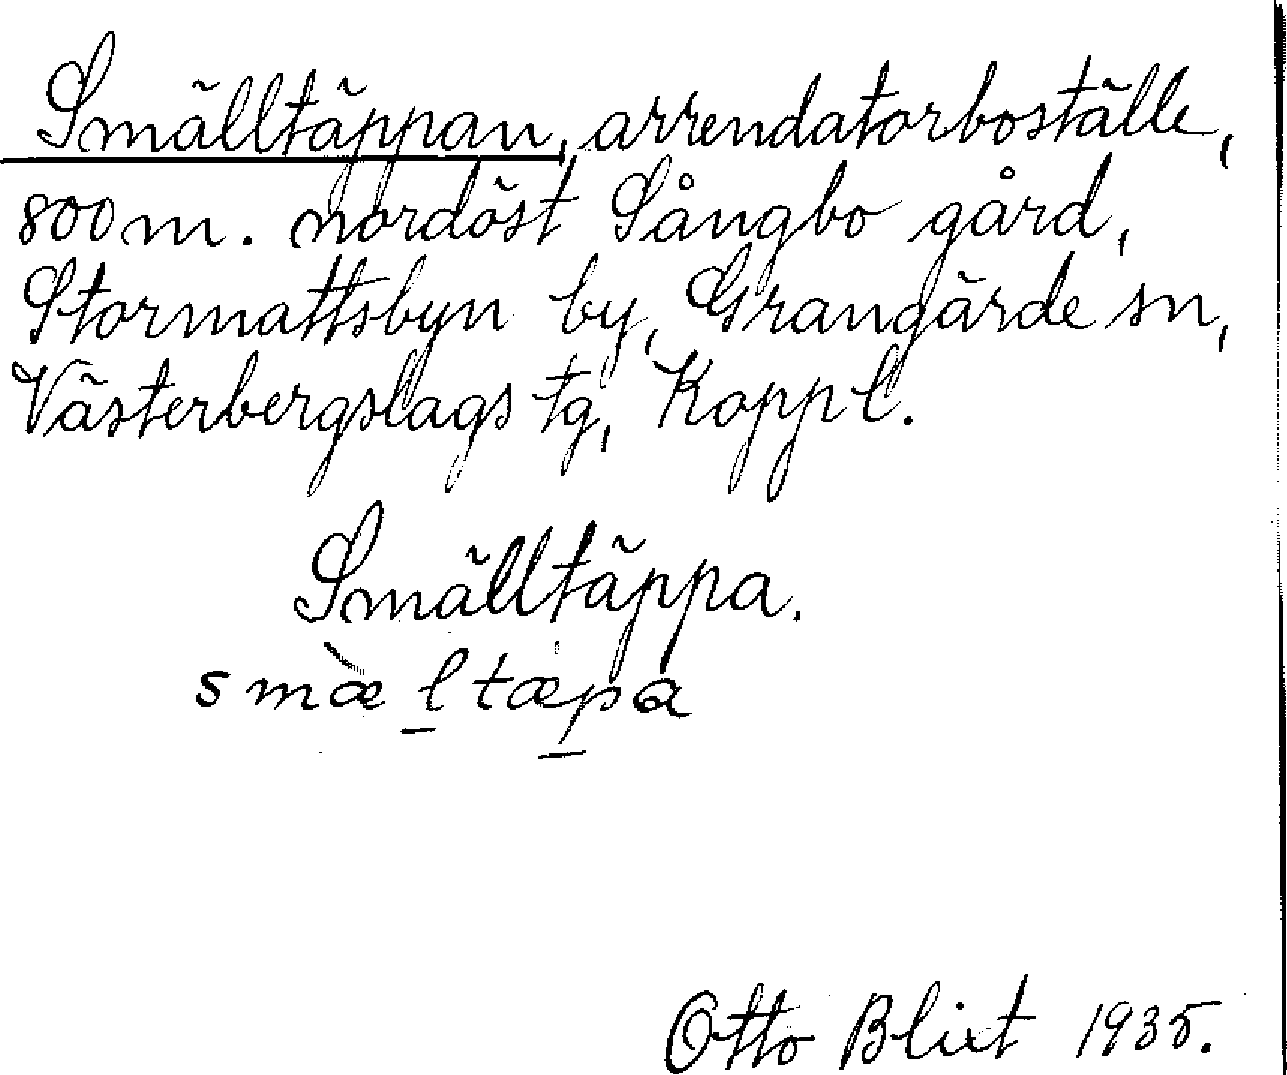 Smälltäppan, arrendatorboställe,
800 m. nordöst Sångbo gård,
Stormattsbyn by, Grangärde sn,
Västerbergslags tg, Kopp l.
Smälltäppa.
smæ̀l̠tæp̠a
Otto Blixt 1935.